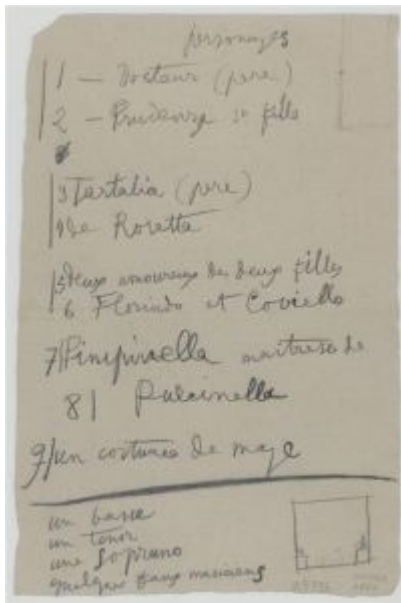 personages
1 — Docteur (pere)
2 — Prudenza sa fille
3 Tartalia (pere)
4 de Rosetta
5 deux amoureux des deux filles
6 Florindo et Coviello
7 Pimpinella maitresse de
8 Pulcinella
9 un costume de mage
un basse
un tenor
une Soprano
quelques faux musiciens